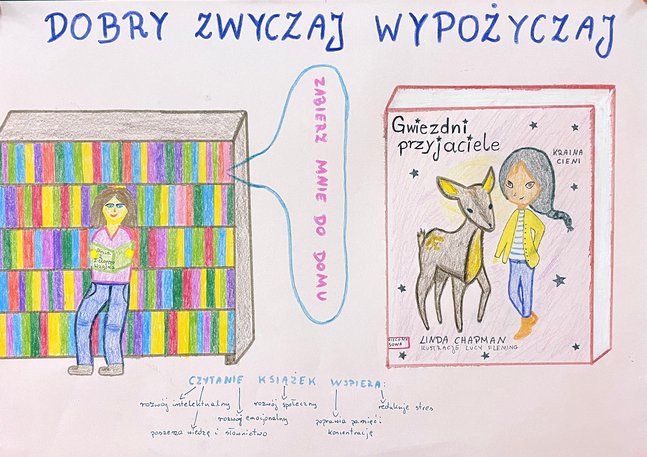 DOBRY ZWYCZAJ WYPOŻYCZAJ
ZABIERZ MNIE DO DOMU
Gwiezdni
przyjaciele
KRAINA
CIENI
LINDA CHAPMAN
ILUSTRACJE LUCY FLEMING
CZYTANIE KSIĄŻEK WSPIERA:
rozwój intelektualny
rozwój społeczny
redukuje stres
rozwój emocjonalny
poprawia pamięć i
koncentrację
poszerza wiedzę i słownictwo